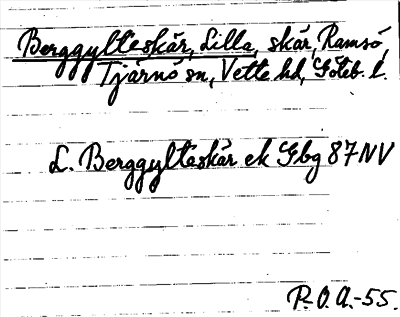 Berggylteskär, Lilla, skär, Ramsö,
Tjärnö sn, Vette hd, Göteb. l.
L. Berggylteskär ek Gbg 87 NV
P-O.A.-55.